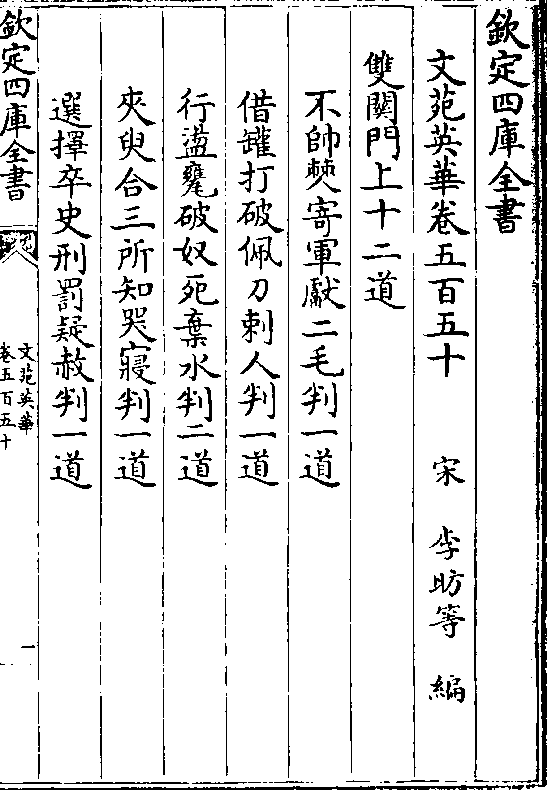 欽定四庫全書
文苑英華卷五百五十 宋 李昉等 編
雙關門上十二道
不帥僰寄軍獻二毛判一道
借罐打破佩刀刺人判一道
行盪甕破奴死棄水判二道
夾臾合三所知哭寢判一道
選擇卒史刑罰疑赦判一道
欽定四庫全書
文苑英華
卷五百五十
一